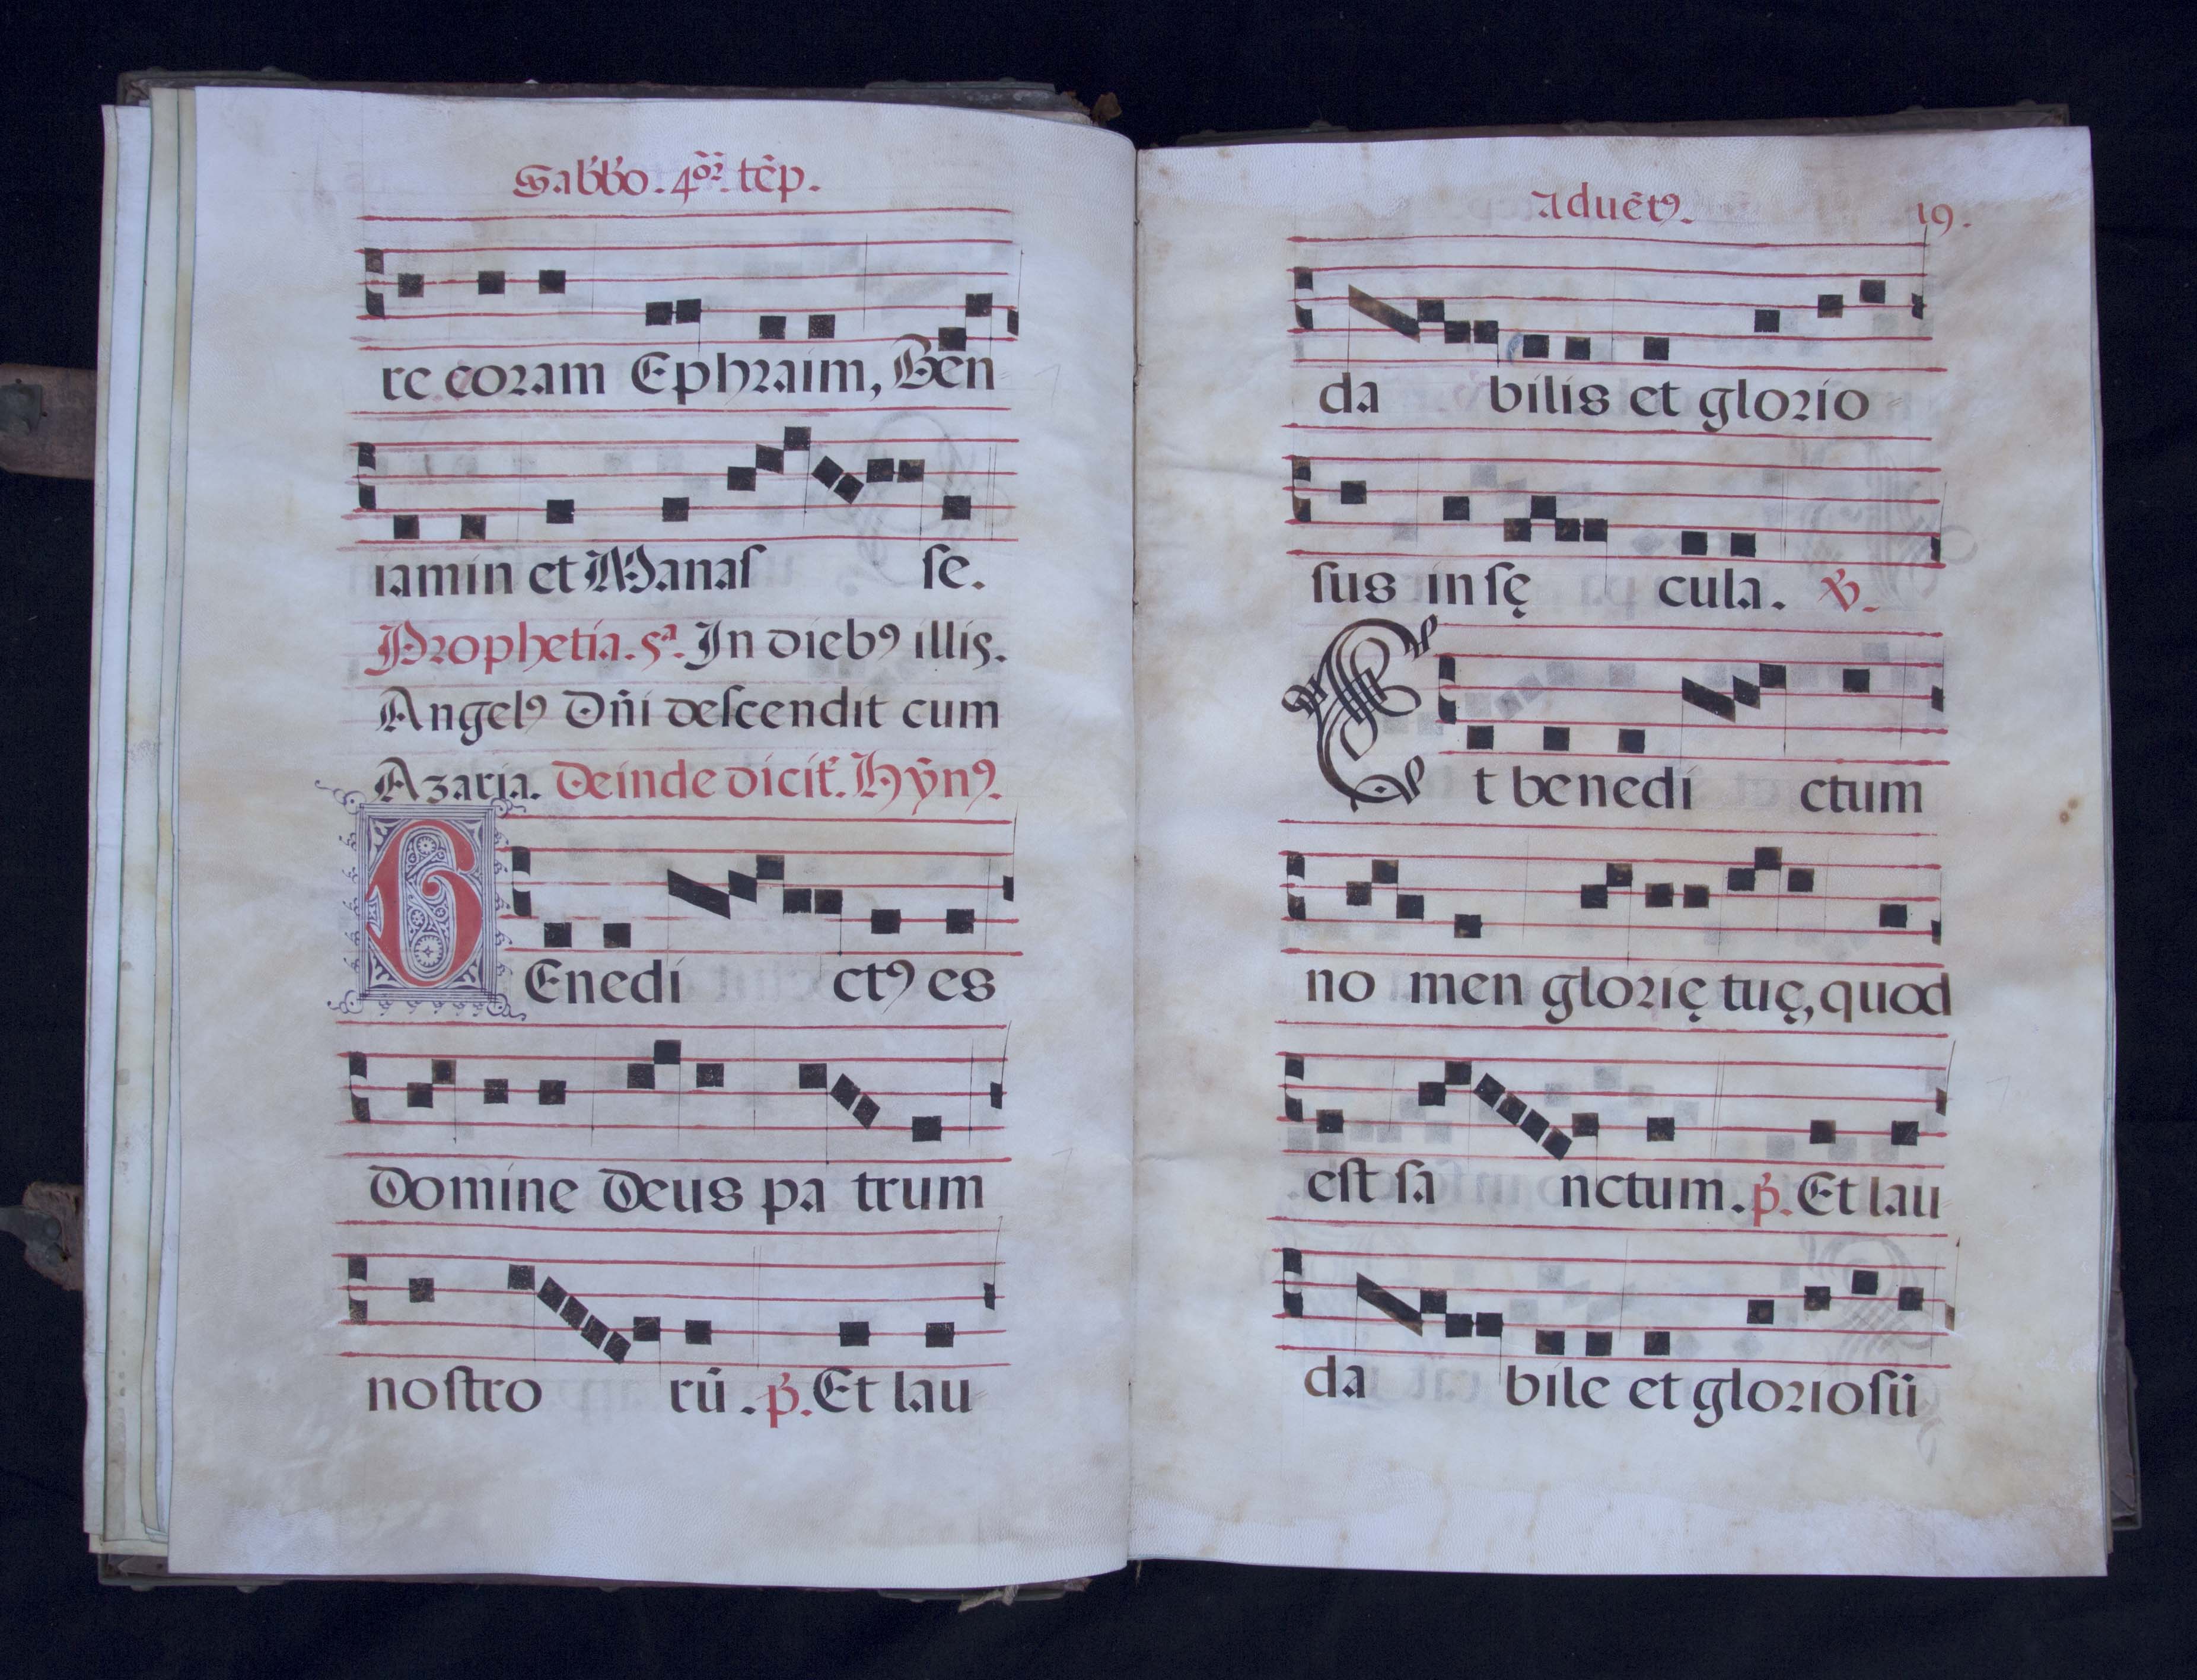 Sab́b́o. 4õr̃. tẽp.
re coram Ephraim, Ben
iamin et Manaſ ſe.
Prophetia. 5ª. In diebꝰ illis.
Angelꝰ Dñi deſcendit cum
Azaria. Deinde dicit̃. Hỹnꝰ.
BEnedi ctꝰ es
Domine Deus pa trum
noſtro rũ. ṕ. Et lau
Aduẽtꝰ. 19.
da bilis et glorio
ſus in ſę cula. ℣.
Et benedi ctum
no men glorię tuę, quod
eſt ſa nctum. ṕ. Et lau
da bile et glorioſũ